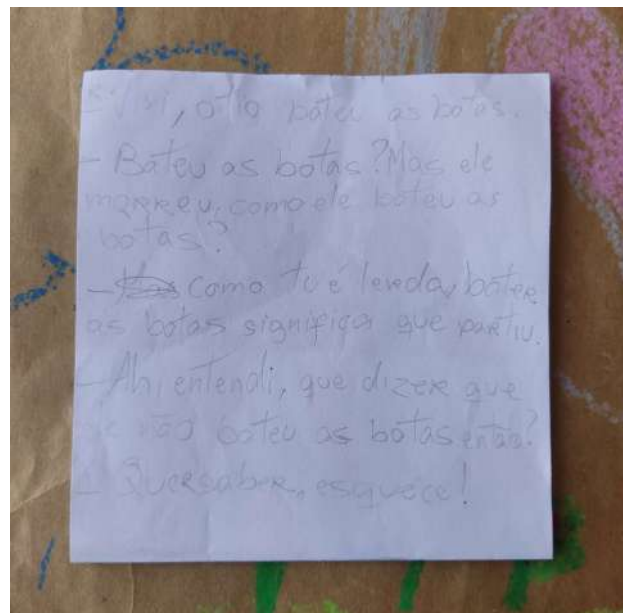 - Vixi, o tio bateu as botas.
- Bateu as botas? Mas ele
morreu, como ele bateu as
botas?
- Como tu é lenda, bater
as botas significa que partiu.
- Ah, entendi, que dizer que
ele não bateu as botas então?
- Quer saber, esquece!